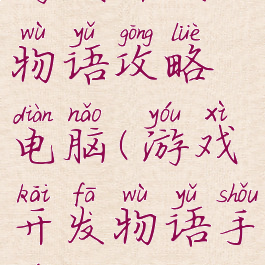 wù yǔ gōng lüè
物语攻略
diàn nǎo yóu xì
电脑(游戏
kāi fā wù yǔ shǒu
开发物语手